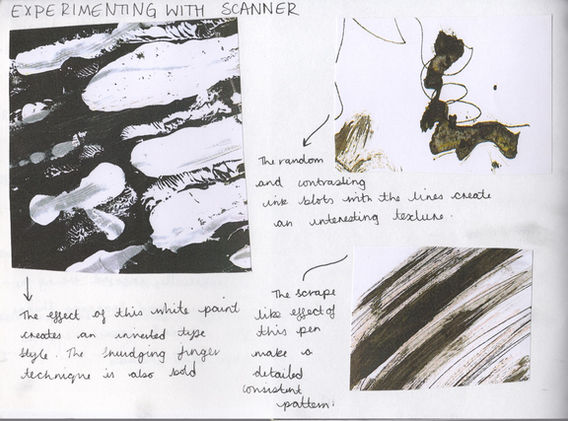 EXPERIMENTING WITH SCANNER
The random
and contrasting
ink blots with the lines create
an interesting texture.
The effect of this white paint
creates an inverted type
style. The smudging finger
technique is also bold
The scrape
like effect of
this pen
make a
detailed
consistent
pattern.